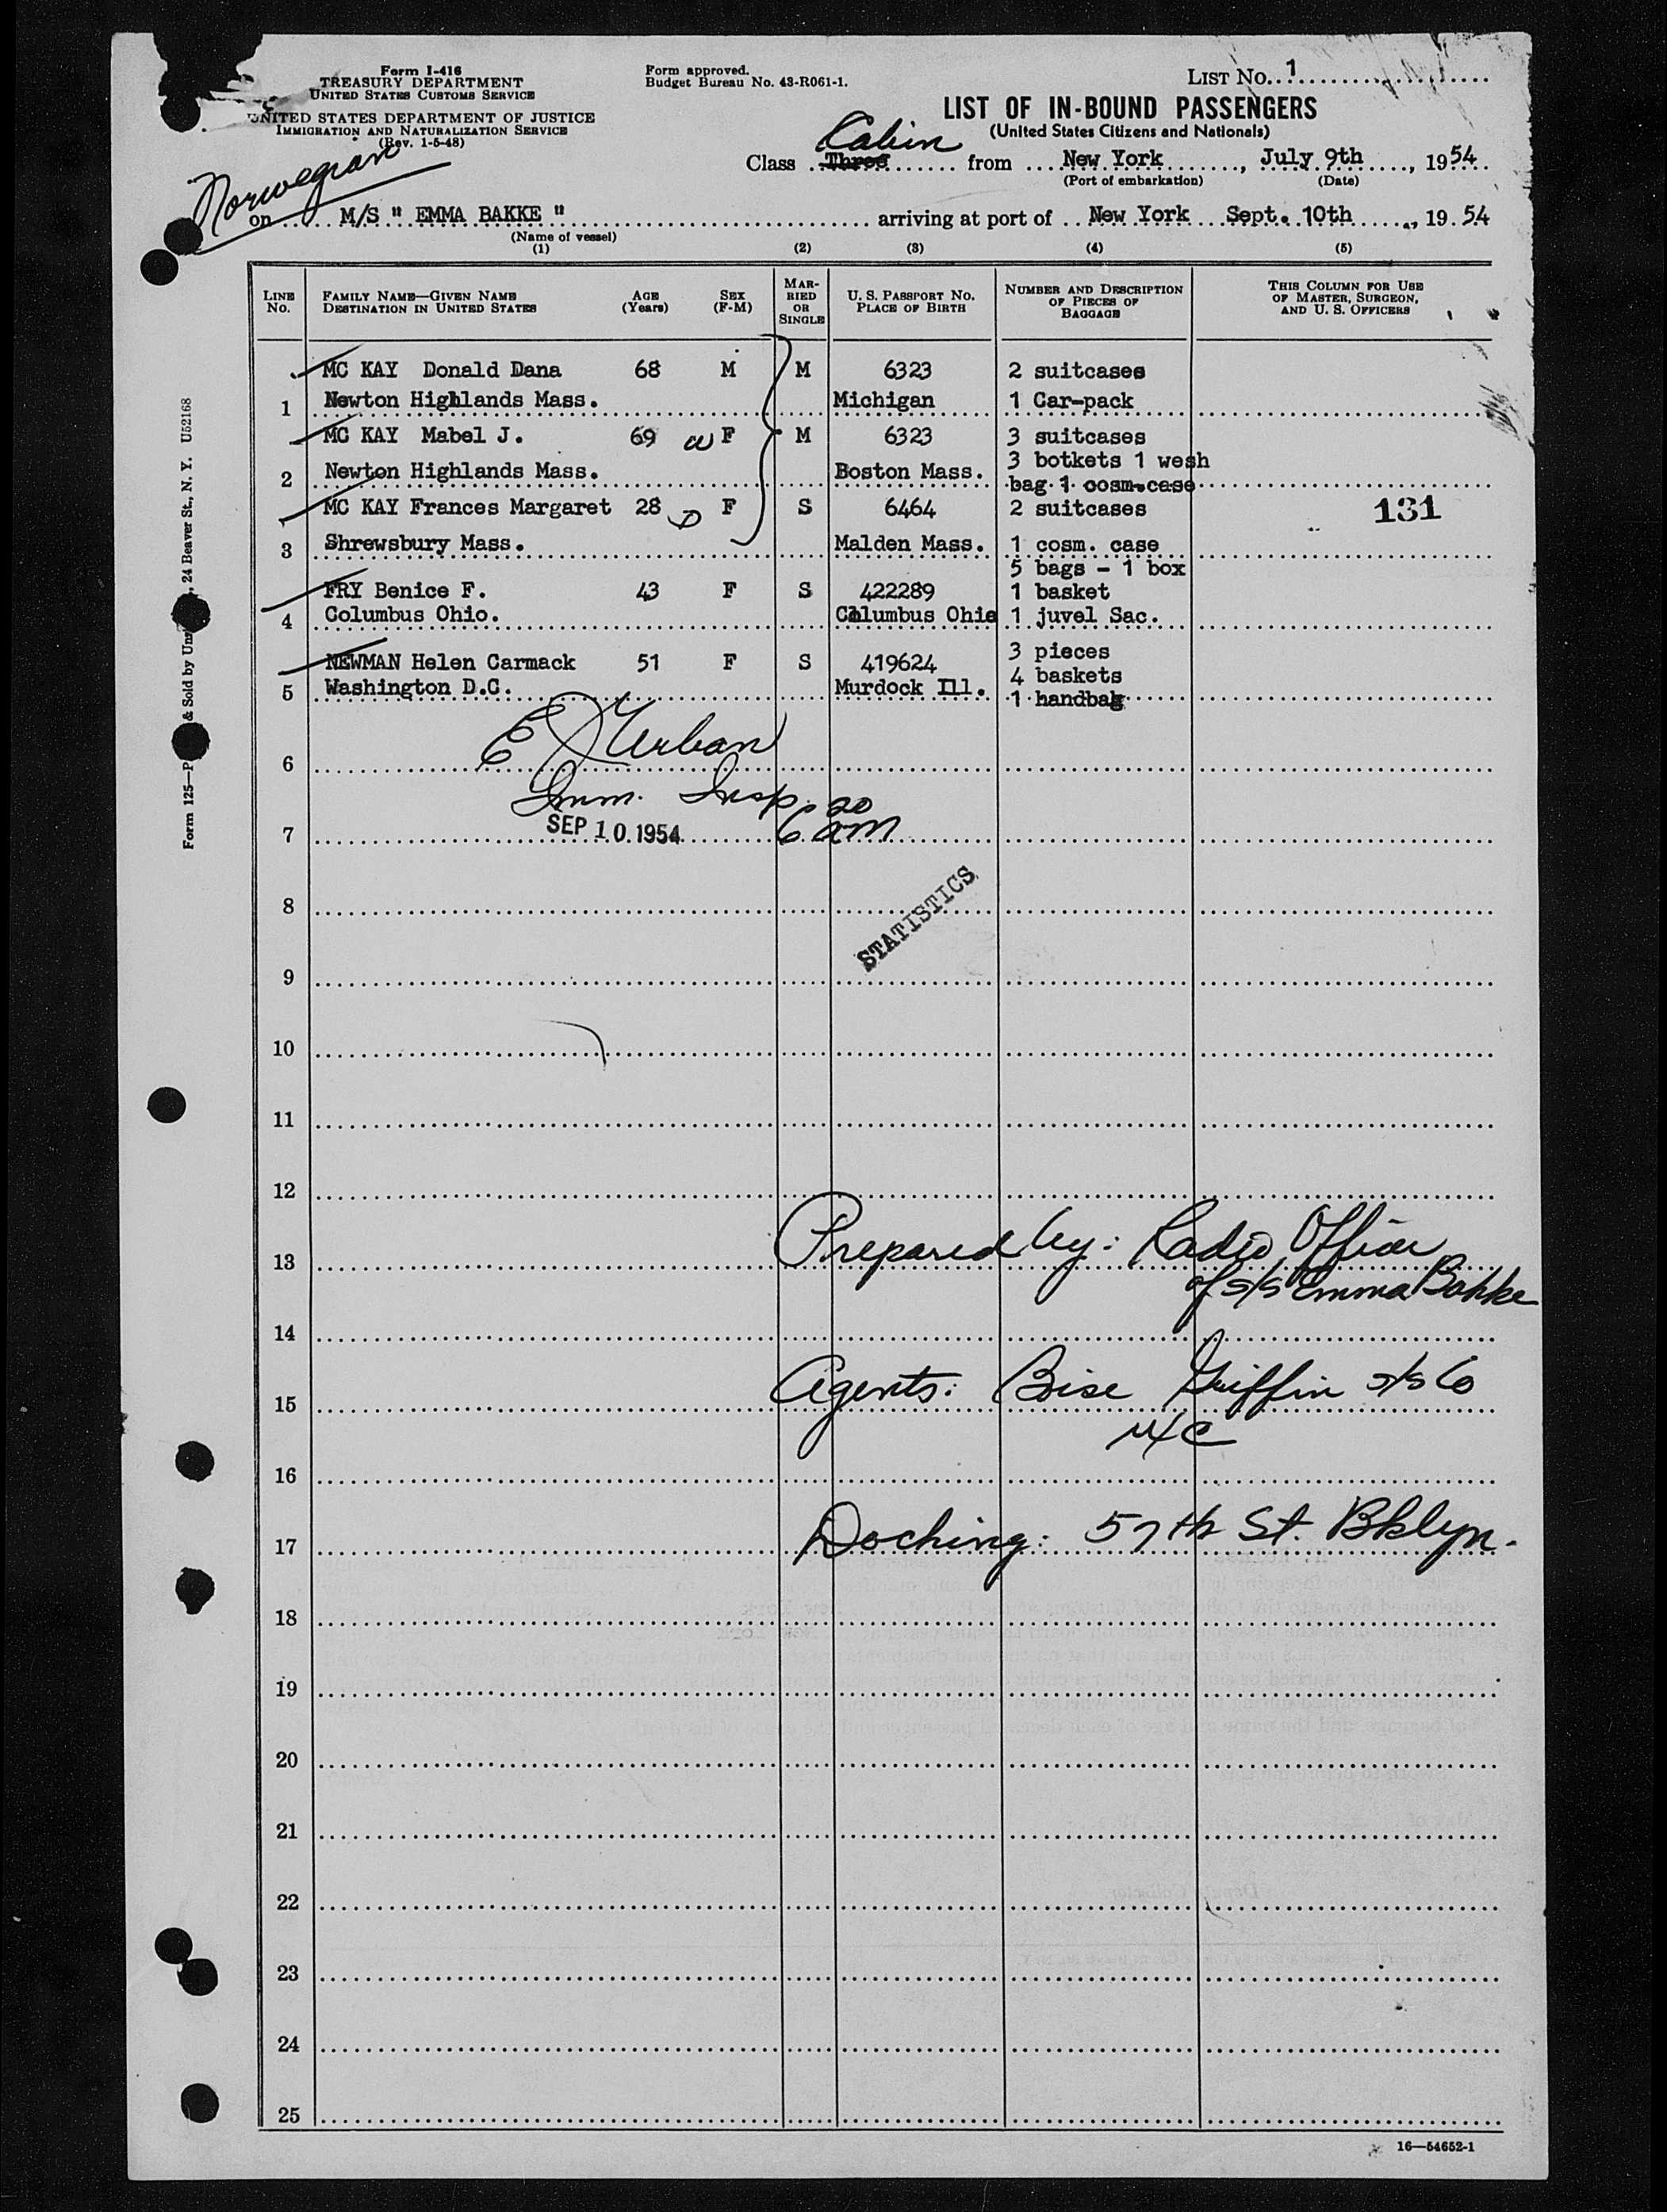 Form I-416
TREASURY DEPARTMENT
UNITED STATES CUSTOMS SERVICE
UNITED STATES DEPARTMENT OF JUSTICE
IMMIGRATION AND NATURALIZATION SERVICE
(Rev. 1-5-48)
Form approved.
Budget Bureau No. 43-R061-1.
LIST No. 1
LIST OF IN-BOUND PASSENGERS
(United States Citizens and Nationals)
Cabin
Class Three from New York, July 9th, 1954
(Port of embarkation) (Date)
Norwegian
on M/S " EMMA BAKKE " arriving at port of New York Sept. 10th, 1954
(Name of vessel)
(1) (2) (3) (4) (5)
LINE No. FAMILY NAME—GIVEN NAME DESTINATION IN UNITED STATES AGE (Years) SEX (F-M) MARRIED OR SINGLE U. S. PASSPORT NO. PLACE OF BIRTH NUMBER AND DESCRIPTION OF PIECES OF BAGGAGE THIS COLUMN FOR USE OF MASTER, SURGEON, AND U. S. OFFICERS
MC KAY Donald Dana 68 M M 6323 2 suitcases
1 Newton Highlands Mass. Michigan 1 Car-pack
MC KAY Mabel J. 69 F M 6323 3 suitcases
3 botkets 1 wesh
2 Newton Highlands Mass. Boston Mass. bag 1 cosm.case
MC KAY Frances Margaret 28 F S 6464 2 suitcases 131
3 Shrewsbury Mass. Malden Mass. 1 cosm. case
5 bags - 1 box
FRY Benice F. 43 F S 422289 1 basket
4 Columbus Ohio. Columbus Ohio 1 juvel Sac.
3 pieces
NEWMAN Helen Carmack 51 F S 419624 4 baskets
5 Washington D.C. Murdock Ill. 1 handbag
E J Urban
6
Imm. Insp. 6 20 am
7 SEP 10 1954
8
STATISTICS
9
10
11
12
13 Prepared by: Radio Officer
of s/s Emma Bakke
14
15 Agents: Bise Griffin s/s Co
NYC
16
17 Docking: 57th St. Bklyn.
18
19
20
21
22
23
24
25
16—54652-1
Form 125—P & Sold by Un , 24 Beaver St., N. Y. U52168